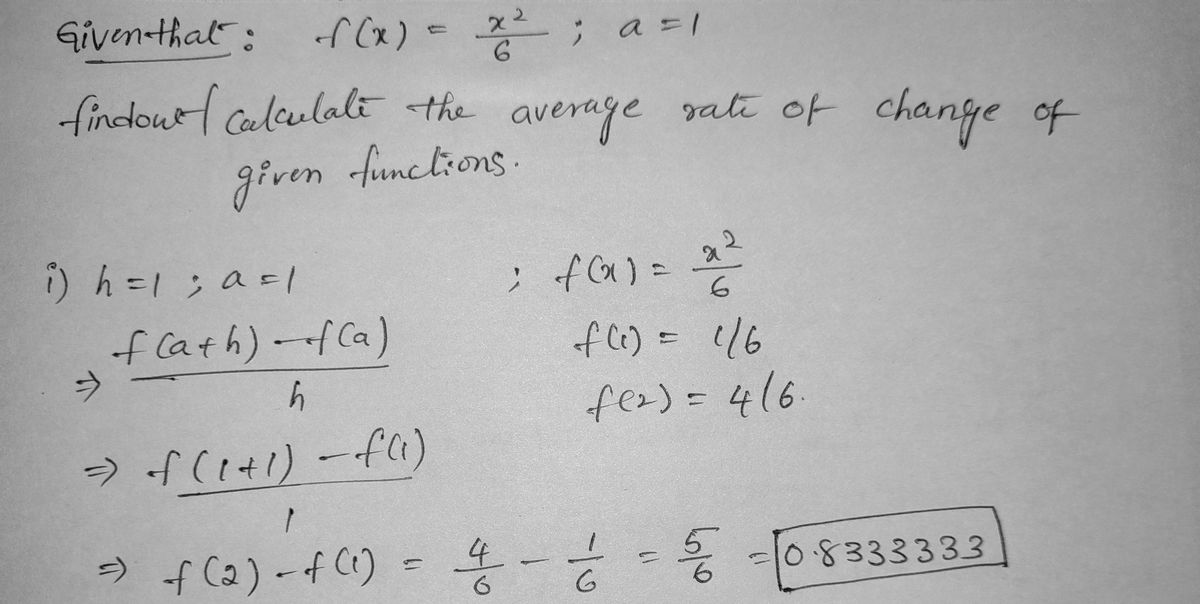 Given that : f(x) = x²/6 ; a = 1
findout / calculate the average rate of change of
given functions.
i) h = 1 ; a = 1 ; f(x) = x²/6
⇒ f(a+h) - f(a) / h
f(1) = 1/6
f(2) = 4/6.
⇒ f(1+1) - f(1) / 1
⇒ f(2) - f(1) = 4/6 - 1/6 = 5/6 = 0.8333333